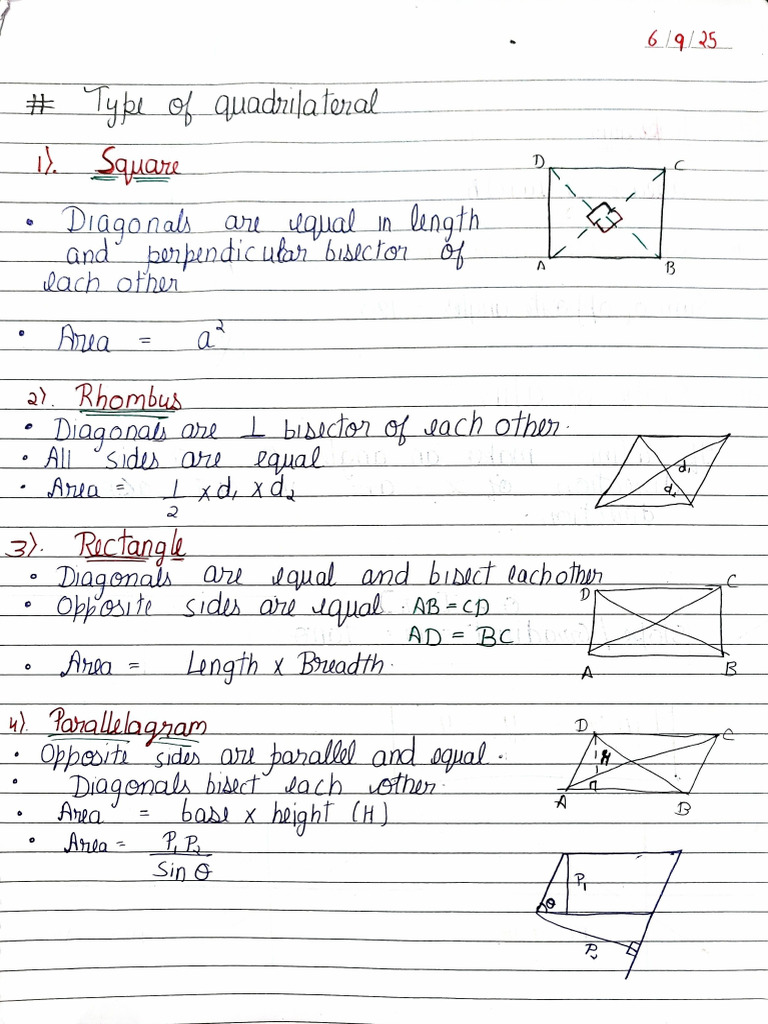 6/9/25
# Type of quadrilateral
1). Square
D C
• Diagonals are equal in length
and perpendicular bisector of
each other
A B
• Area = a²
2). Rhombus
• Diagonals are ⊥ bisector of each other.
• All sides are equal
d₁
• Area = 1/2 × d₁ × d₂
d₂
3). Rectangle
• Diagonals are equal and bisect eachother
D C
• Opposite sides are equal. AB = CD
AD = BC
• Area = Length × Breadth.
A B
4). Parallelagram
D C
• Opposite sides are parallel and equal.
H
• Diagonals bisect each other.
A B
• Area = base × height (H)
• Area = P₁ P₂ / Sin θ
P₁
θ
P₂